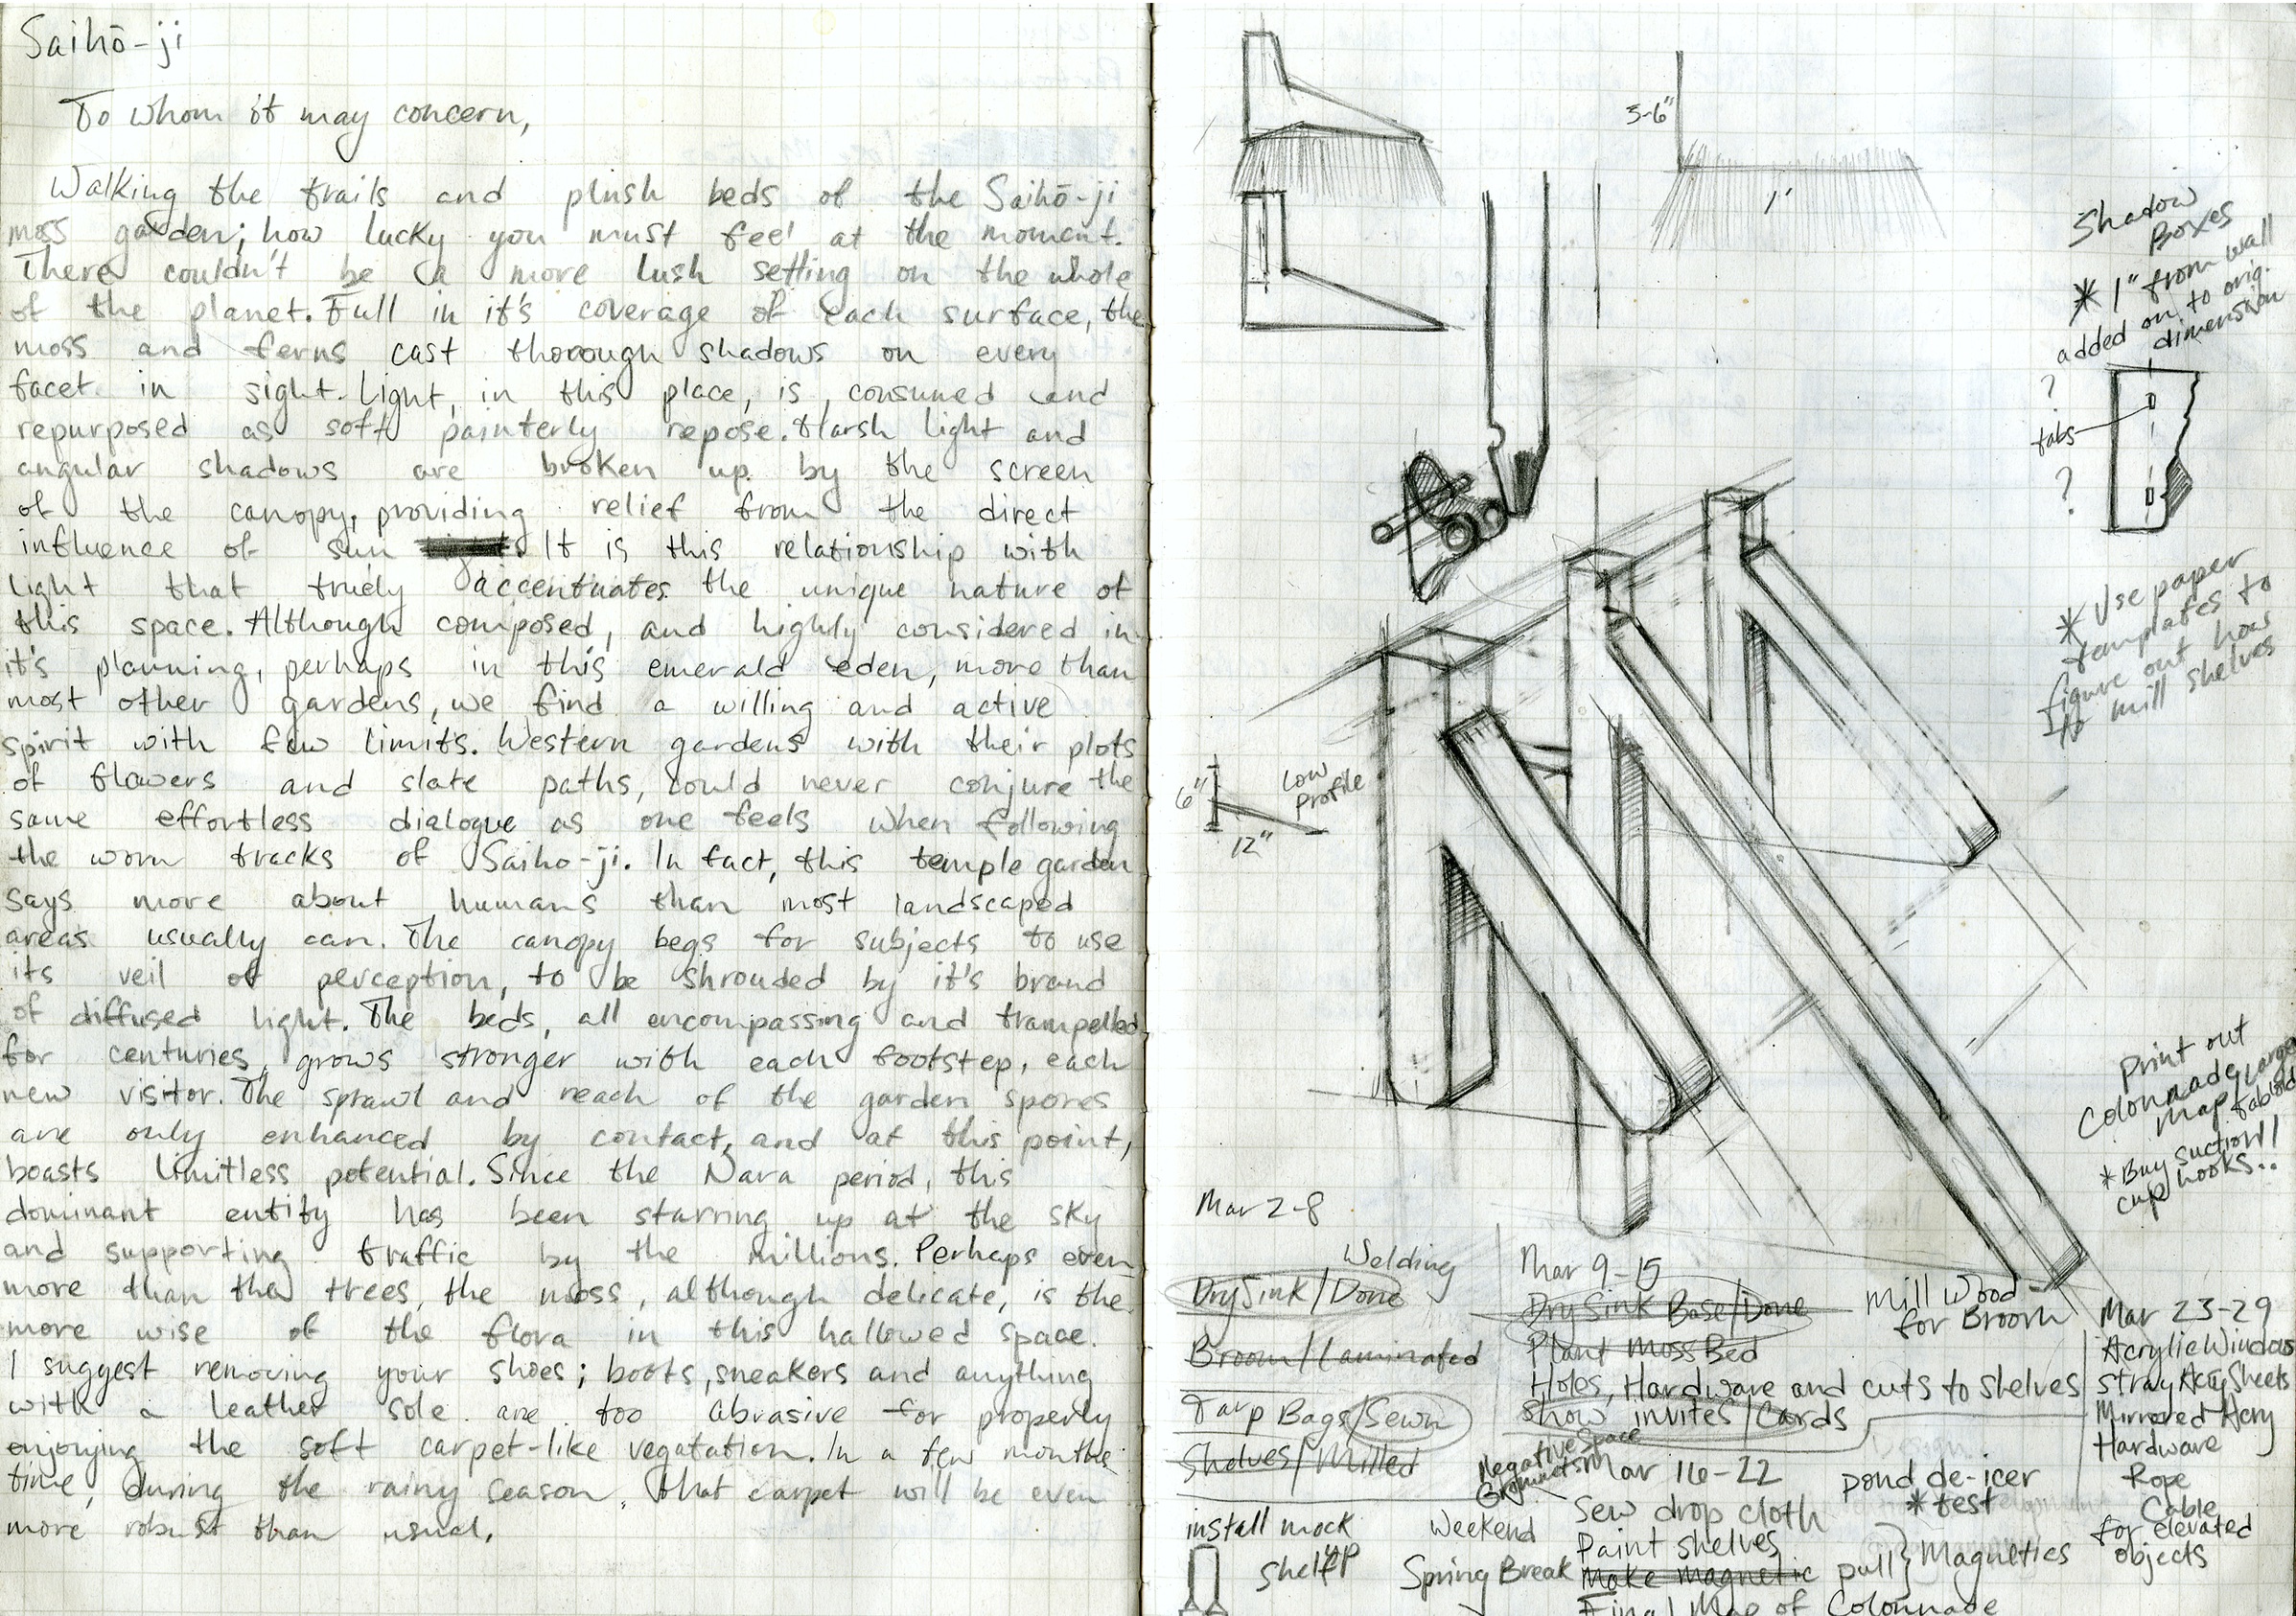 Saihō-ji
To whom it may concern,
Walking the trails and plush beds of the Saihō-ji
moss garden; how lucky you must feel at the moment.
There couldn't be a more lush setting on the whole
of the planet. Full in it's coverage of each surface, the
moss and ferns cast thorough shadows on every
facet in sight. Light, in this place, is consumed and
repurposed as soft painterly repose. Harsh light and
angular shadows are broken up by the screen
of the canopy, providing relief from the direct
influence of sun. It is this relationship with
light that truely accentuates the unique nature of
this space. Although composed, and highly considered in
it's planning, perhaps in this emerald eden, more than
most other gardens, we find a willing and active
spirit with few limits. Western gardens with their plots
of flowers and slate paths, could never conjure the
same effortless dialogue as one feels when following
the worn tracks of Saiho-ji. In fact, this temple garden
says more about humans than most landscaped
areas usually can. The canopy begs for subjects to use
its veil of perception, to be shrouded by it's brand
of diffused light. The beds, all encompassing and trampelled
for centuries, grows stronger with each footstep, each
new visitor. The sprawl and reach of the garden spores
are only enhanced by contact, and at this point,
boasts limitless potential. Since the Nara period, this
dominant entity has been starring up at the sky
and supporting traffic by the millions. Perhaps even
more than the trees, the moss, although delicate, is the
more wise of the flora in this hallowed space.
I suggest removing your shoes; boots, sneakers and anything
with a leather sole are too abrasive for properly
enjoying the soft carpet-like vegatation. In a few months
time, during the rainy season, that carpet will be even
more robust than usual.
5-6"
1'
Shadow
Boxes
* 1" from wall
added on to orig.
dimension
?
tabs
?
* Use paper
templates to
figure out how
to mill shelves
6"
12"
Low
Profile
Print out
Colonnade
map/Large
tabloid
* Buy suction!!
cup hooks..
Mar 2-8
Welding
Dry Sink/Done
Broom/Laminated
Tarp Bags/Sewn
Shelves/Milled
install mock
shelf up
Weekend
Spring Break
Mar 9-15
Dry Sink Base/Done
Plant Moss Bed
Holes, Hardware and cuts to shelves
Show invites/Cards
Mill Wood
for Broom
Negative Space
Grommets?
Mar 16-22
Sew drop cloth
Paint shelves
Make magnetic pull
Final Map of Colonnade
pond de-icer
* test
Magnetics
Mar 23-29
Acrylic Windows
stray Acry Sheets
Mirrored Acry
Hardware
Rope
Cable
for elevated
objects